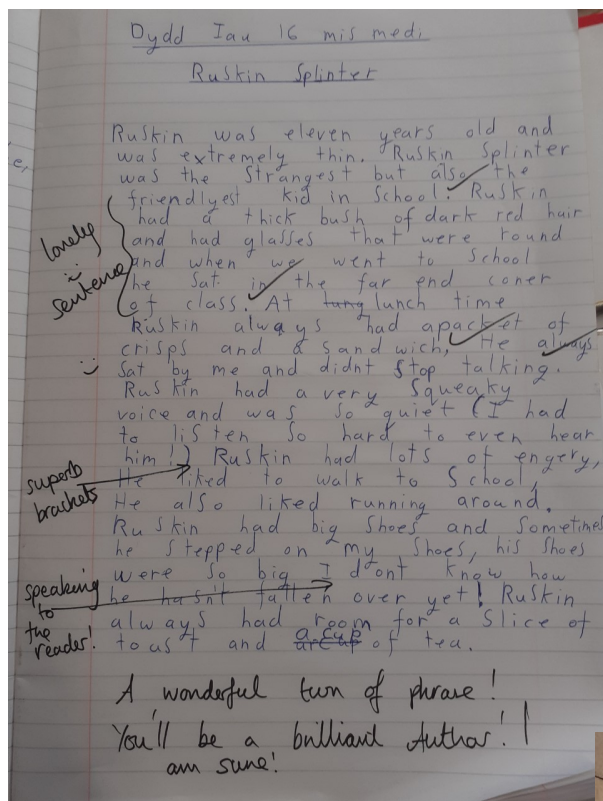 Dydd Iau 16 mis medi
Ruskin Splinter
Ruskin was eleven years old and
was extremely thin. Ruskin Splinter
was the strangest but also the
friendlyest kid in School. Ruskin
had a thick bush of dark red hair
and had glasses that were round
and when we went to School
he Sat in the far end coner
of class. At lunch time
Ruskin always had a packet of
crisps and a sandwich, He always
Sat by me and didnt Stop talking.
Ruskin had a very Squeaky
voice and was so quiet (I had
to listen so hard to even hear
him!) Ruskin had lots of engery,
He liked to walk to School,
He also liked running around.
Ruskin had big Shoes and Sometimes
he Stepped on my Shoes, his Shoes
were So big I dont know how
he hasn't fallen over yet! Ruskin
always had room for a Slice of
toast and a cup of tea.
lonely
sentence
superb
brackets
speaking
to
the
reader!
A wonderful turn of phrase!
You'll be a brilliant Author! I
am sure!